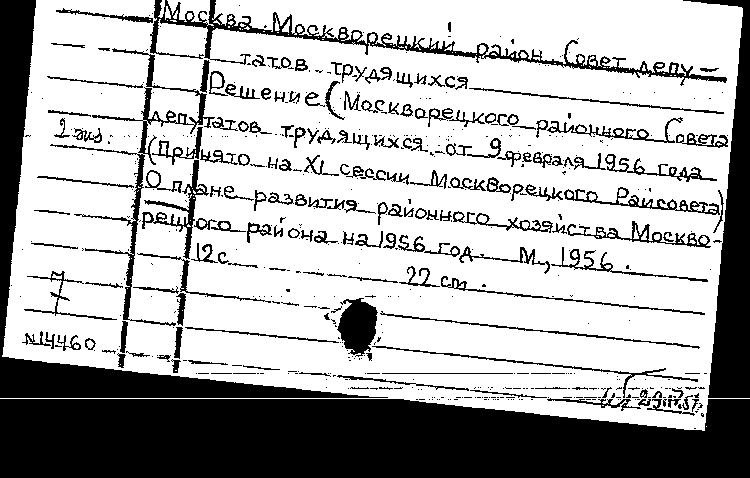 Москва. Москворецкий район. Совет депу-
татов трудящихся
Решение (Москворецкого районного Совета
депутатов трудящихся от 9 февраля 1956 года
2 экз.
(Принято на XI сессии Москворецкого Райсовета)
О плане развития районного хозяйства Москво-
рецкого района на 1956 год. М., 1956.
12 с 22 см.
7
N14460